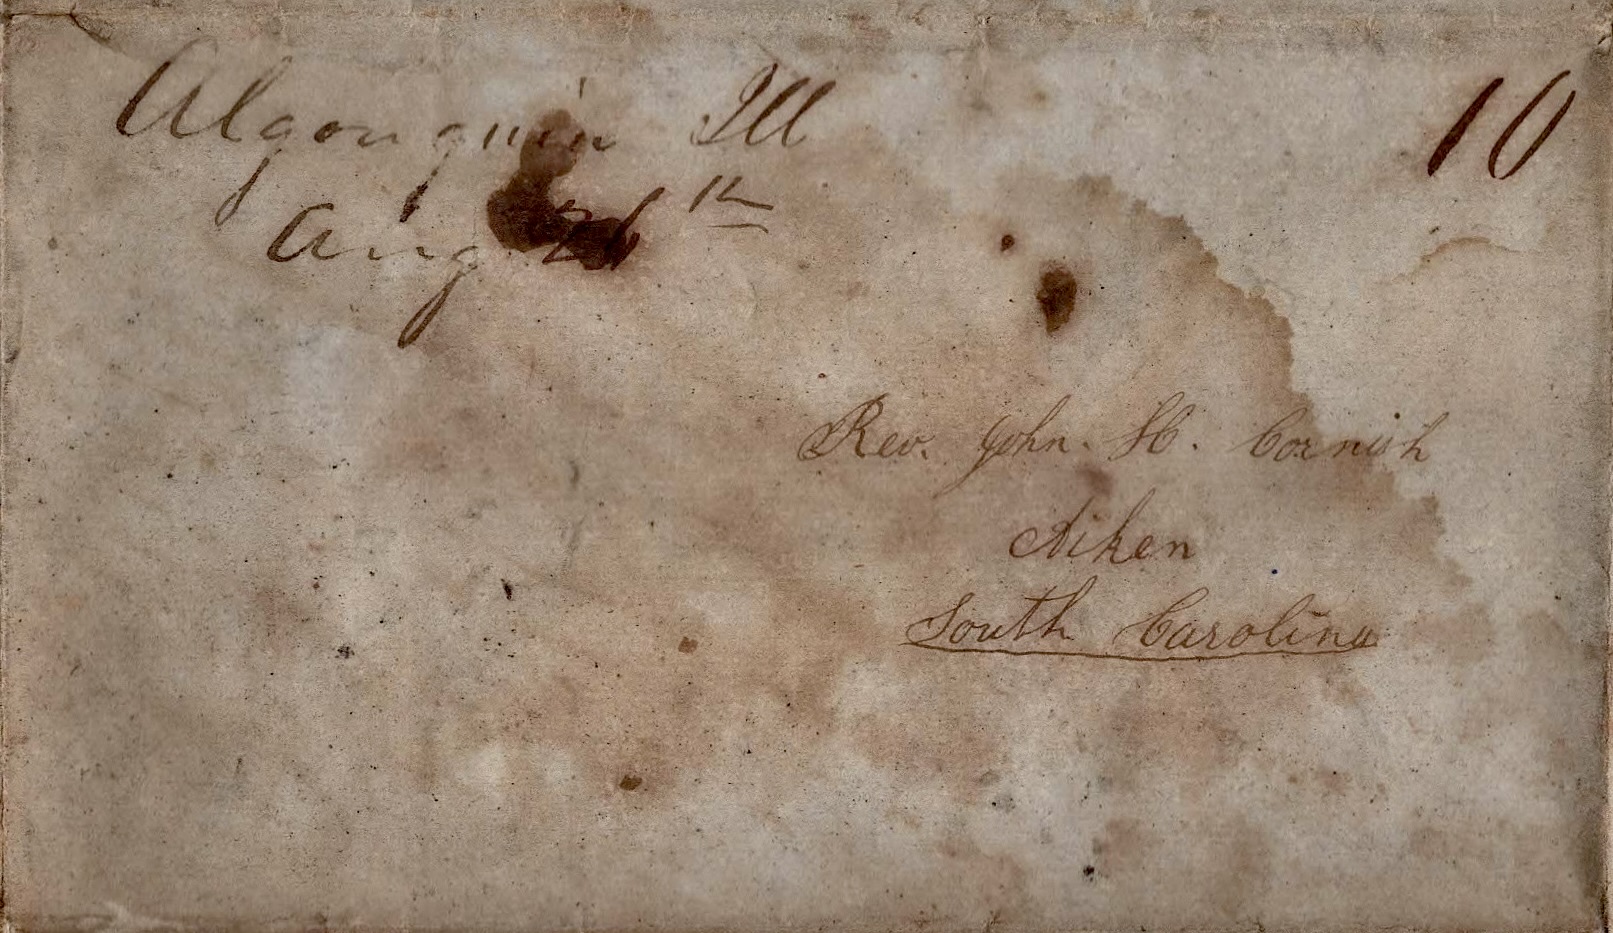 Algonquin Ill
10
Aug 26th
Rev. John. H. Cornish
Aiken
South Carolina